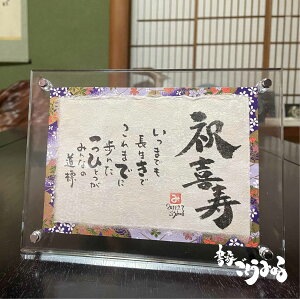 祝喜寿
いつまでも
長生きで
これまでに
歩んだ
一つひとつが
みんなの
道標